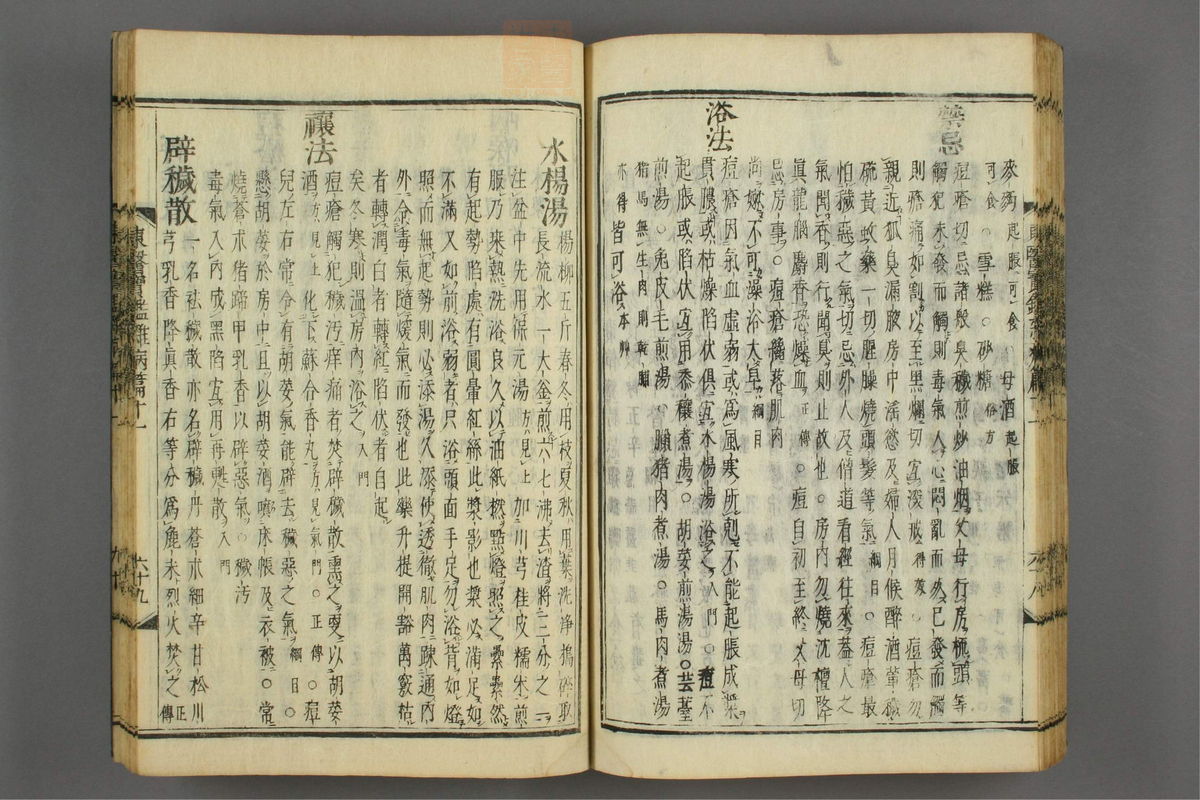 麥麪起脹可食 ○母酒起脹
可食 ○雪糕○砂糖俗方
禁忌
痘瘡切忌諸般臭穢煎炒油烟父母行房梳頭等
觸犯未發而觸則毒氣入心悶亂而死已發而觸
則瘡痛如割以至黑爛切宜深玻得效 ○痘瘡勿
親近狐臭漏腋房中淫慾及婦人月候醉酒葷穢
硫黃蚊藥一切腥臊燒頭髮等氣綱目 ○痘瘡最
怕穢惡之氣切忌外人及僧道看經往來蓋人之
氣聞香則行聞臭則止故也○房內勿燒沈檀降
眞龍腦麝香恐燥血正傳 ○痘自初至終父母切
忌房事○痘瘡落肌肉
尚嫩不可澡浴太早綱目
浴法
痘瘡因氣血虛弱或爲風寒所剋不能起脹成漿
貫膿或枯燥陷伏俱宜水楊湯浴之入門 ○痘不
起脹或陷伏宜用黍穰煮湯○胡荽煎湯○芸薹
煎湯○兔皮毛煎湯○臘猪肉煮湯○馬肉煮湯
猪馬無生肉則乾腊
亦得皆可浴本草
水楊湯
楊柳五斤春冬用枝夏秋用葉洗淨搗碎取
長流水一大釜煎六七沸去渣將三分之一
注盆中先用保元湯方見上加川芎桂皮糯米煎
服乃來熱洗浴良久以油紙撚點燈照之纍纍然
有起勢陷處有圓暈紅絲此漿影也漿必滿足如
不滿又如前浴弱者只浴頭面手足勿浴背如燈
照而無起勢則必添湯久添使透徹肌肉踈通內
外令毒氣隨煖氣而發也此藥升提開豁萬竅枯
者轉潤白者轉紅陷伏者自起
矣冬寒則溫房內浴之入門
禳法
痘瘡觸犯穢汚痒痛者焚辟穢散熏之更以胡荽
酒方見上化下蘇合香丸方見氣門○正傳 ○痘
兒左右常令有胡荽氣能辟去穢惡之氣綱目○
懸胡荽於房中且以胡荽酒噴床帳及衣被○常
燒蒼朮猪蹄甲乳香以辟惡氣○穢汚
毒氣入內成黑陷宜用再甦散入門
辟穢散
一名祛穢散亦名辟穢丹蒼朮細辛甘松川
芎乳香降眞香右等分爲麁末烈火焚之正傳
東醫寶鑑雜病篇十一
六十九